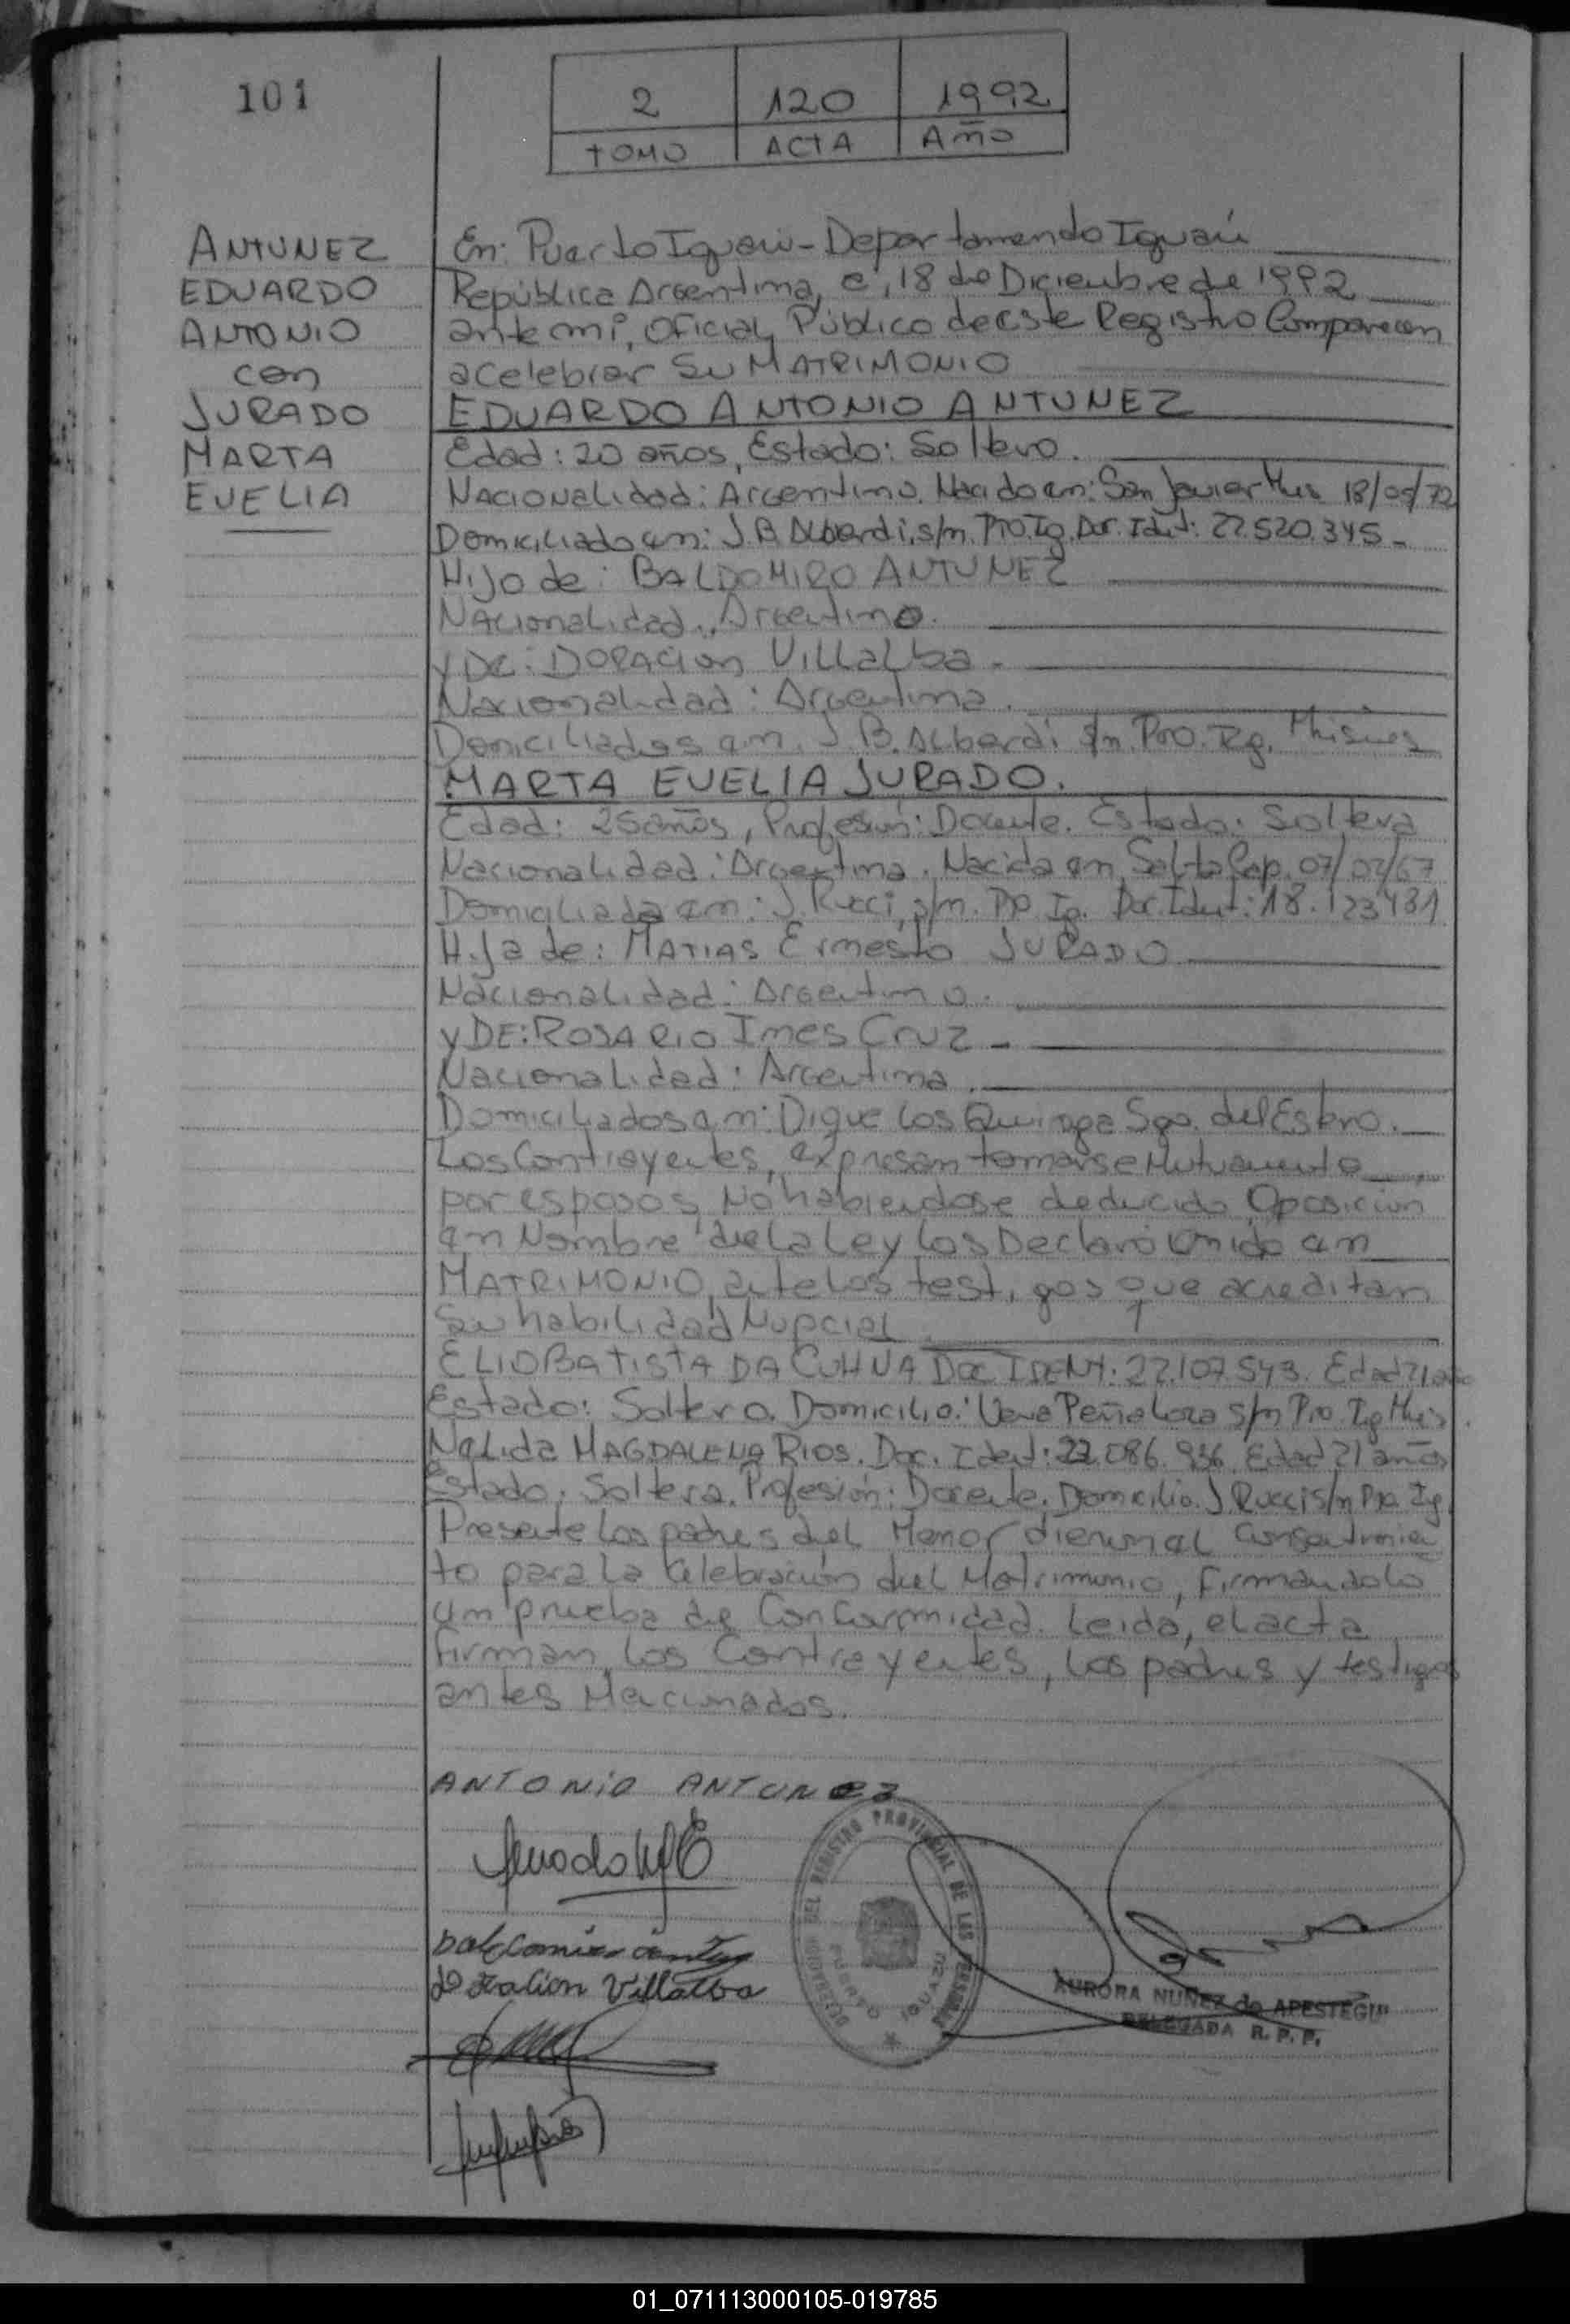 101
2 120 1992
TOMO ACTA Año
ANTUNEZ
EDUARDO
ANTONIO
con
JURADO
MARTA
EVELIA
En: Puerto Iguazú - Departamendo Iguazú
República Argentina, a, 18 de Diciembre de 1992
ante mi, Oficial Público de este Registro Comparecen
a celebrar Su MATRIMONIO
EDUARDO ANTONIO ANTUNEZ
Edad: 20 años, Estado: Soltero.
Nacionalidad: Argentino. Nacido en: San Javier Mnes 18/05/72
Domiciliado en: J.B. Alberdi, s/n. Pto. Ig. Doc. Idet: 22.520.345.-
Hijo de: BALDOMIRO ANTUNEZ
Nacionalidad: Argentino.
y DE: DORACION Villalba.
Nacionalidad: Argentina.
Domiciliados en. J.B. Alberdi s/n. Pto. Ig. Misiones
MARTA EVELIA JURADO.
Edad: 25 años, Profesión: Docente. Estado: Soltera
Nacionalidad: Argentina. Nacida en Salta Cap. 07/02/67
Domiciliada en: J. Rucci, s/n. Pto Ig. Doc. Ident: 18.123431
Hija de: MATIAS Ernesto JURADO
Nacionalidad: Argentino.
y DE: ROSARIO Ines Cruz -
Nacionalidad: Argentina.
Domiciliados en: Dique los Quiroga Sgo. del Estero.
Los Contrayentes, expresan tomarse Mutuamente
por esposos, No habiendose deducido Oposicion
en Nombre de la Ley los Declaro Unido en
MATRIMONIO, ante los testigos que acreditan
su habilidad Nupcial
ELIO BATISTA DA CUHNA Doc IDENT: 22.107.543. Edad 21 año
Estado: Soltero. Domicilio: Vera Peñaloza s/n Pto. Ig Mnes.
Nelida MAGDALENA RIOS. Doc. Ident: 22.086.936. Edad 21 años
Estado: Soltera. Profesión: Docente. Domicilio. J. Rucci s/n Pto. Ig
Presente los padres del Menor dieron el consentimien
to para la Celebración del Matrimonio, firmandolo
en prueba de Conformidad. Leida, el acta
firman, los Contrayentes, los padres y testigos
antes Mecionados.
ANTONIO ANTUNEZ
Jurado M E
Doracion Villalba
DELEGACION DEL REGISTRO PROVINCIAL DE LAS PERSONAS
PUERTO IGUAZU
AURORA NUÑEZ de APESTEGUI
DELEGADA R. P. P.
01_071113000105-019785